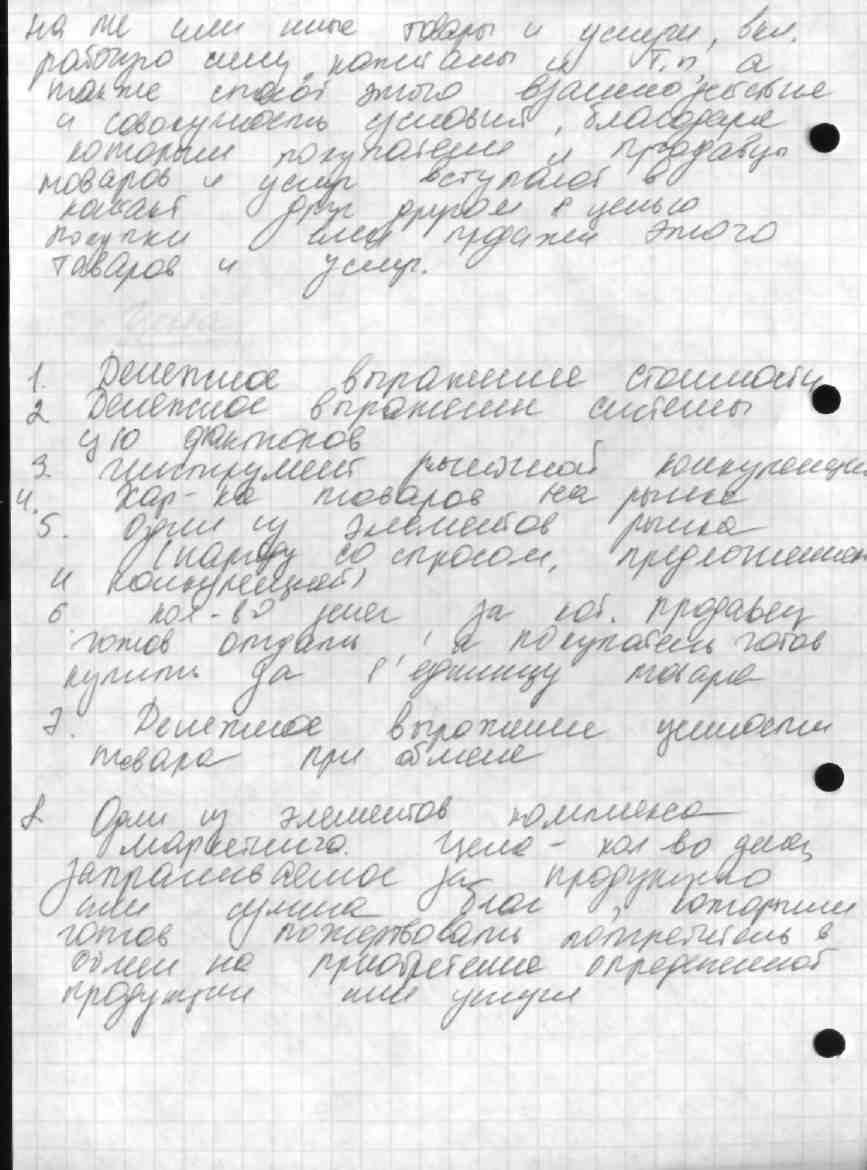 на те или иные товары и услуги, вкл.
рабочую силу, капиталы и т.п, а
также способ этого взаимодействие
и совокупность условий, благодаря
которым покупатели и продавцы
товаров и услуг вступают в
контакт друг другом с целью
покупки или продажи этого
товаров и услуг.
Цена
1. Денежное выражение стоимости
2 Денежное выражении системы
ц/о факторов
3. инструмент рыночной конкуренции
4. Хар-ка товаров на рынке
5. один из элементов рынка
(наряду со спросом, предложением
и конкуренцией)
6 кол-во денег за кот. продавец
готов отдать, а покупатель готов
купить за 1 единицу товара
7. Денежное выражение ценности
товара при обмене
8 Один из элементов комплекса
маркетинга. Цена - кол во денег,
запрашиваемое за продукцию
или сумма благ, которыми
готов пожертвовать потребитель в
обмен на приобретение определенной
продукции или услуги